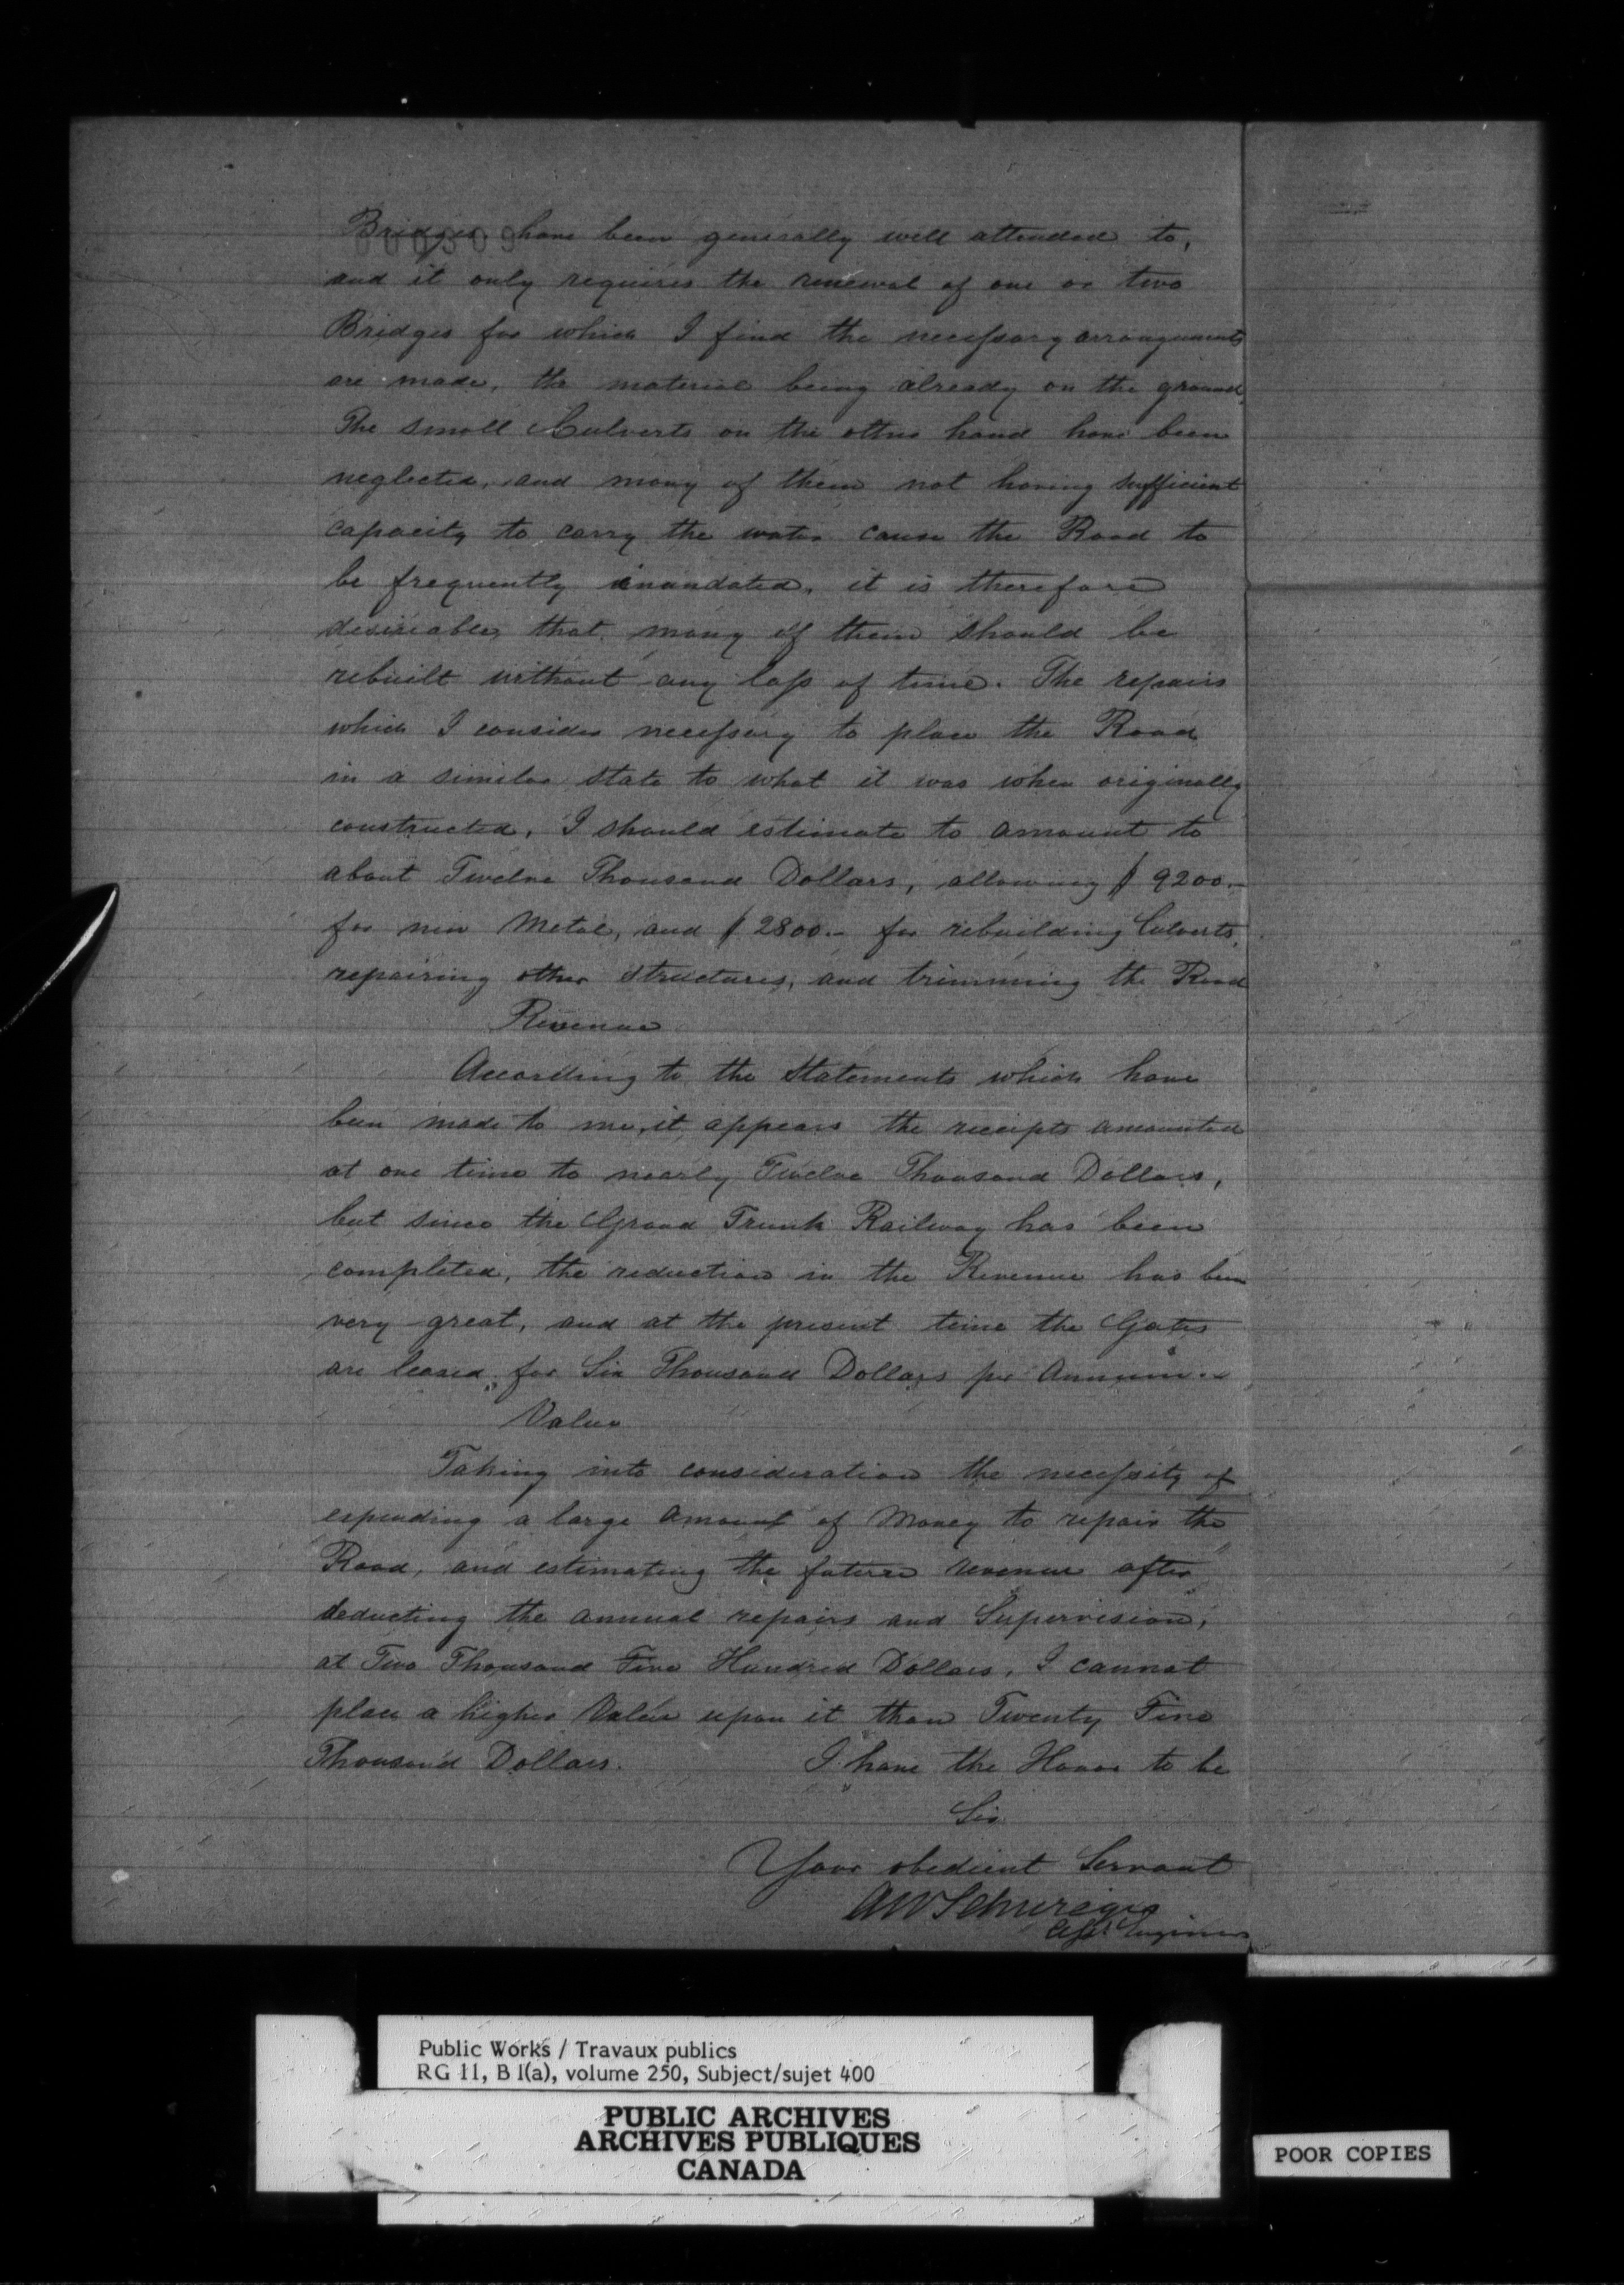 000309
Bridges have been generally well attended to,
and it only requires the renewal of one or two
Bridges for which I find the necessary arrangements
are made, the material being already on the ground.
The small Culverts on the other hand have been
neglected, and many of them not having sufficient
capacity to carry the water cause the Road to
be frequently inundated, it is therefore
desireable, that many of them should be
rebuilt without any loss of time. The repairs
which I consider necessary to place the Road
in a similar state to what it was when originally
constructed, I should estimate to amount to
about Twelve Thousand Dollars, allowing $ 9200.-
for new Metal, and $ 2800.- for rebuilding Culverts,
repairing other structures, and trimming the Road
Revenue
According to the Statements which have
been made to me, it appears the receipts amounted
at one time to nearly Twelve Thousand Dollars,
but since the Grand Trunk Railway has been
completed, the reduction in the Revenue has been
very great, and at the present time the Gates
are leased for Six Thousand Dollars per Annum.-
Value
Taking into consideration the necessity of
expending a large amount of Money to repair the
Road, and estimating the future revenue after
deducting the annual repairs and Supervision,
at Two Thousand Five Hundred Dollars, I cannot
place a higher Value upon it than Twenty Five
Thousand Dollars. I have the Honor to be
Sir
Your obedient Servant
AW Schwieger
Asst Engineer
Public Works / Travaux publics
RG 11, B 1(a), volume 250, Subject/sujet 400
PUBLIC ARCHIVES
ARCHIVES PUBLIQUES
CANADA
POOR COPIES